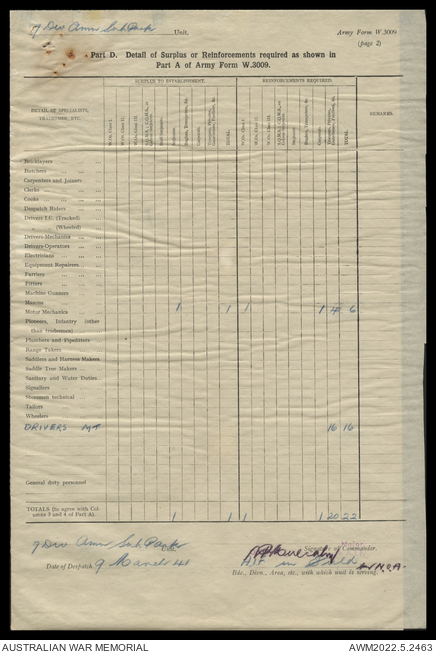 7 Div Amm Sub Park Unit. Army Form W.3009
(page 2)
Part D. Detail of Surplus or Reinforcements required as shown in
Part A of Army Form W.3009.
SURPLUS TO ESTABLISHMENT. REINFORCEMENTS REQUIRED.
DETAIL OF SPECIALISTS,
TRADESMEN, ETC.
W.Os. Class I.
W.Os. Class II.
W.Os. Class III.
TOTAL.
W.Os. Class I.
W.Os. Class II.
W.Os. Class III.
TOTAL.
REMARKS.
Bricklayers
Butchers
Carpenters and Joiners
Clerks
Cooks
Despatch Riders
Drivers I.C. (Tracked)
" (Wheeled)
Drivers-Mechanics
Drivers-Operators
Electricians
Equipment Repairers
Farriers
Fitters
Machine Gunners
Masons
Motor Mechanics 1 1 1 1 4 6
Pioneers, Infantry (other
than tradesmen)
Plumbers and Pipefitters
Range Takers
Saddlers and Harness Makers
Saddle Tree Makers
Sanitary and Water Duties
Signallers
Storemen technical
Tailors
Wheelers
DRIVERS MT 16 16
General duty personnel
TOTALS (to agree with Col-
umns 3 and 4 of Part A). 1 1 1 1 20 22
7 Div Amm Sub Park Unit.
Major
Signature of Commander.
Date of Despatch 9 March 41 AIF in Field
Bde., Divn., Area, etc., with which unit is serving.
AUSTRALIAN WAR MEMORIAL AWM2022.5.2463